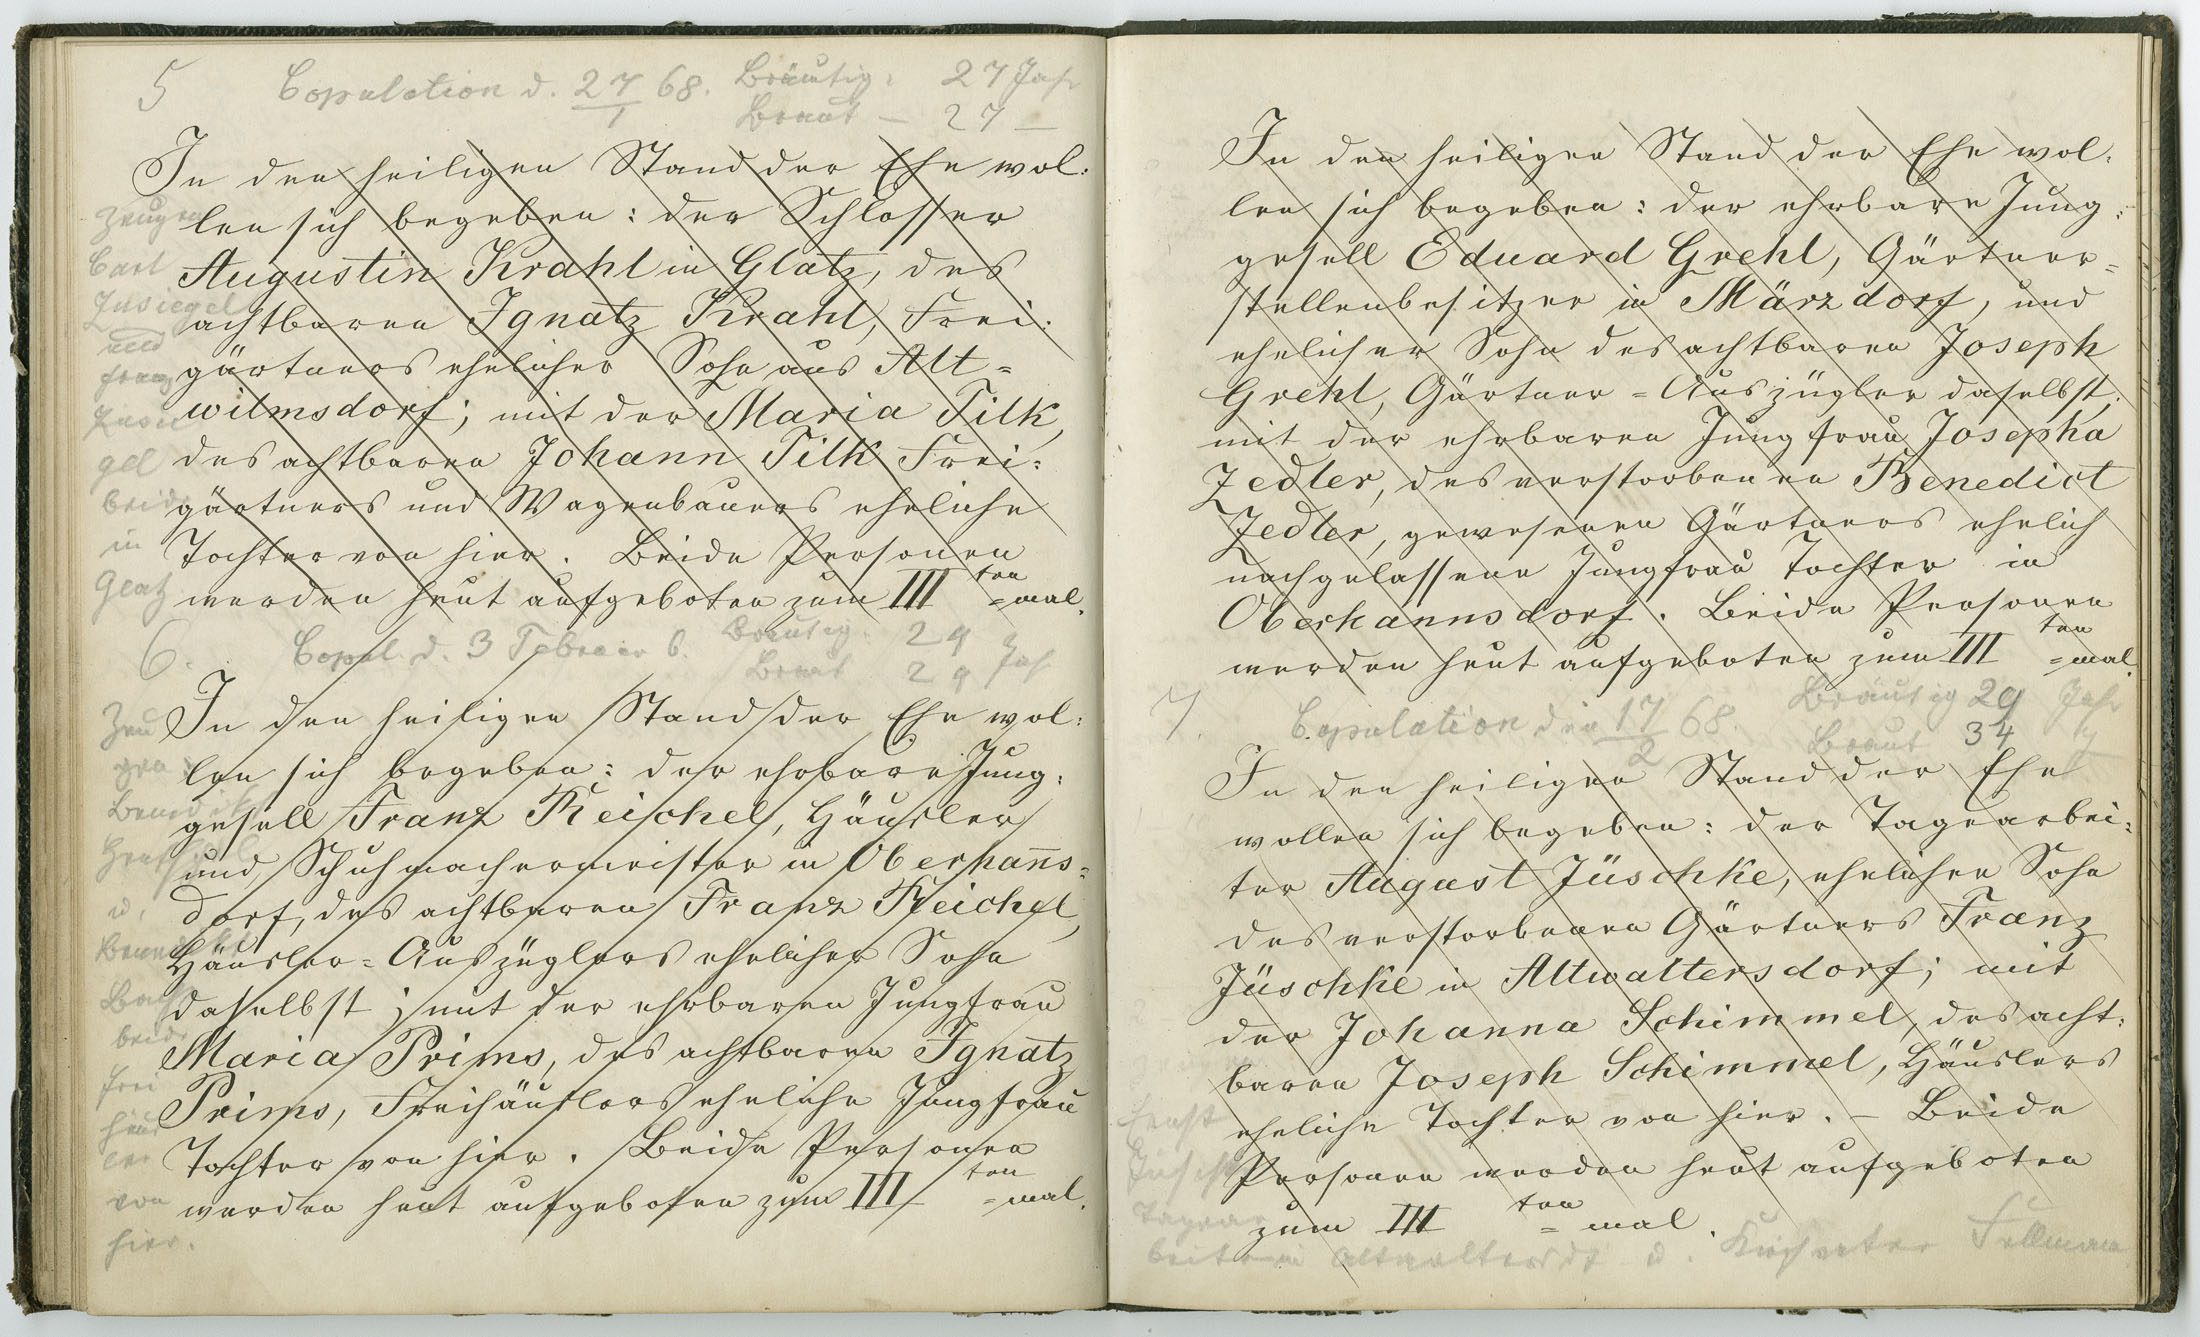 5 Copulation d. 27/1 68. Bräutig: 27 Jahr
Braut – 27 –
In den heiligen Stand der Ehe wol:
len sich begeben: der Schlosser
Augustin Krahl in Glatz, des
achtbaren Ignatz Krahl, Frei:
gärtners ehelicher Sohn aus Alt=
wilmsdorf; mit der Maria Tilk,
des achtbaren Johann Tilk Frei:
gärtners und Wagenbauers eheliche
Tochter von hier. Beide Personen
werden heut aufgeboten zum III ten =mal.
Zeugen
Carl
Insiegel
und
Franz
Insie
gel
beide
in
Glatz
6. Copul. d. 3 Februar 6. Bräutig. 29 Jahr
Braut 29 Jahr
In den heiligen Stand der Ehe wol:
len sich begeben: der ehrbare Jung:
gesell Franz Reichel, Häusler
und Schuhmachermeister in Oberhan̄s=
dorf, des achtbaren Franz Reichel,
Häusler=Auszüglers ehelicher Sohn
daselbst; mit der ehrbaren Jungfrau
Maria Prims, des achtbaren Ignatz
Prims, Freihäuslers eheliche Jungfrau
Tochter von hier. Beide Personen
werden heut aufgeboten zum III ten =mal.
Zeu
gen
u.
beide
frei
häus
ler
von
hier.
In den heiligen Stand der Ehe wol:
len sich begeben: der ehrbare Jung:
gesell Eduard Grehl, Gärtner=
stellenbesitzer in Märzdorf, und
ehelicher Sohn des achtbaren Joseph
Grehl, Gärtner=Auszügler daselbst;
mit der ehrbaren Jungfrau Josepha
Zedler, des verstorbenen Benedict
Zedler, gewesenen Gärtners ehelich
nachgelassene Jungfrau Tochter in
Oberhannsdorf. Beide Personen
werden heut aufgeboten zum III ten =mal.
7. Copulation den 17/2 68. Bräutig 29 Jahr
Braut 34
In den heiligen Stand der Ehe
wollen sich begeben: der Tagearbei:
ter August Jüschke, ehelicher Sohn
des verstorbenen Gärtners Franz
Jüschke in Altwaltersdorf; mit
der Johanna Schimmel, des acht:
baren Joseph Schimmel, Häuslers
eheliche Tochter von hier. – Beide
Personen werden heut aufgeboten
zum III ten = mal.
Ernst
Jüschke
Tagear
beiter in Altwaltersdf u. Kirchvater Fellmann